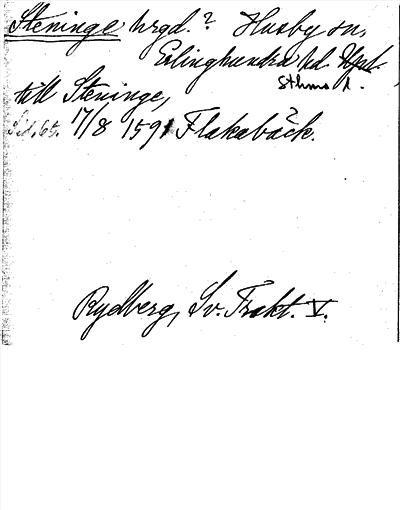 Steninge hrgd.? Husby sn.
Erlinghundra hd. Upl.
Sthms l.
till Steninge,
Sid. 65. 17/8 1591 Flakabäck.
Rydberg, Sv. Trakt. V.